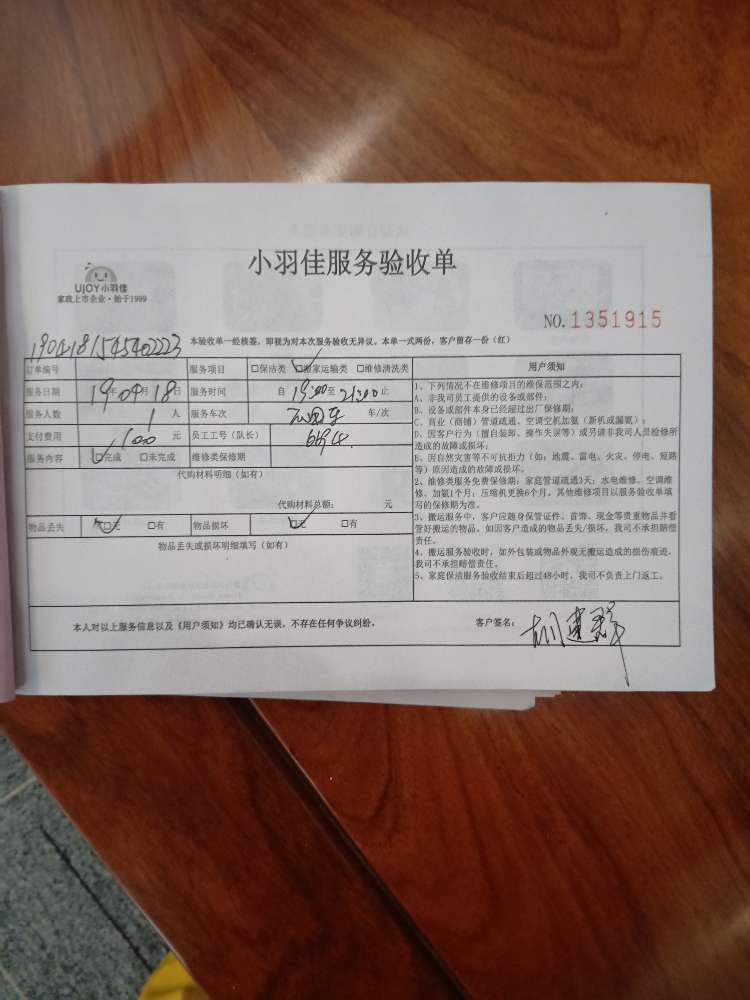 小羽佳服务验收单
UJOY小羽佳
家政上市企业·始于1999
NO.1351915
190418154540223
本验收单一经核签，即视为对本次服务验收无异议。本单一式两份，客户留存一份（红）
订单编号 服务项目 □保洁类 □搬家运输类 □维修清洗类
服务日期 19年04月18日 服务时间 自19:00至21:00止
服务人数 1人 服务车次 车/次
支付费用 100元 员工工号（队长） 6694
服务内容 □完成 □未完成 维修类保修期
代购材料明细（如有）
代购材料总额： 元
物品丢失 □无 □有 物品损坏 □无 □有
物品丢失或损坏明细填写（如有）
用户须知
1、下列情况不在维修项目的维保范围之内：
A、非我司员工提供的设备或部件；
B、设备或部件本身已经超过出厂保修期；
C、商业（商铺）管道疏通、空调空机加氨（新机或漏氨）；
D、因客户行为（擅自装卸、操作失误等）或另请非我司人员检修所
造成的故障或损坏。
E、因自然灾害等不可抗力（如：地震、雷电、火灾、停电、短路
等）原因造成的故障或损坏。
2、维修类服务免费保修期：家庭管道疏通3天；水电维修、空调维
修、加氨1个月；压缩机更换6个月，其他维修项目以服务验收单填
写的保修期为准。
3、搬运服务中，客户应随身保管证件、首饰、现金等贵重物品并看
管好搬运的物品。如因客户造成的物品丢失/损坏，我司不承担赔偿
责任。
4、搬运服务验收时，如外包装或物品外观无搬运造成的损伤痕迹，
我司不承担赔偿责任。
5、家庭保洁服务验收结束后超过48小时，我司不负责上门返工。
本人对以上服务信息以及《用户须知》均已确认无误，不存在任何争议纠纷。
客户签名：